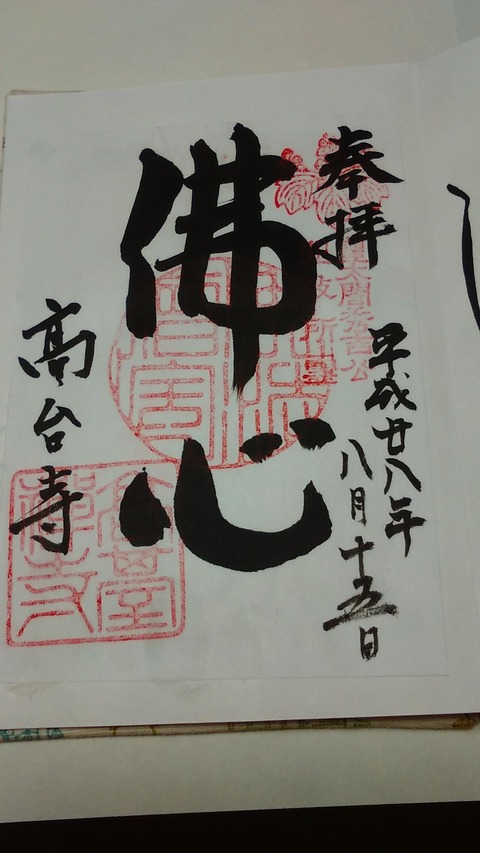 奉拝
平成廿八年
八月十五日
佛心
高台寺